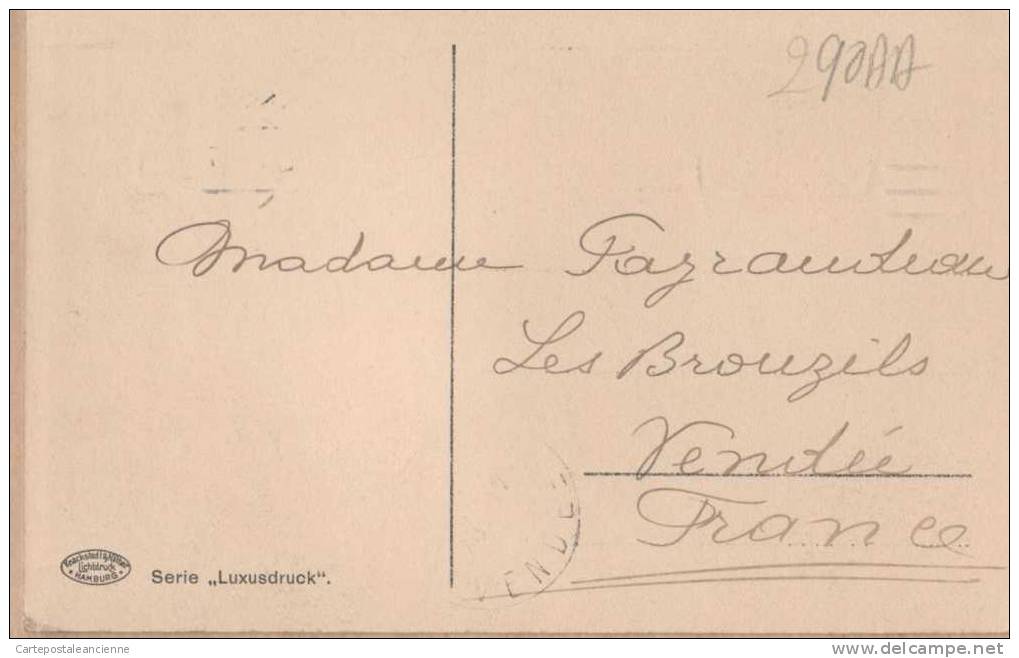 290AA
Madame Fayranteau
Les Brouzils
Vendée
France
VENDEE
Knackstedt & Näther
Lichtdruck
HAMBURG
Serie „Luxusdruck".
Cartepostaleancienne
www.delcampe.net